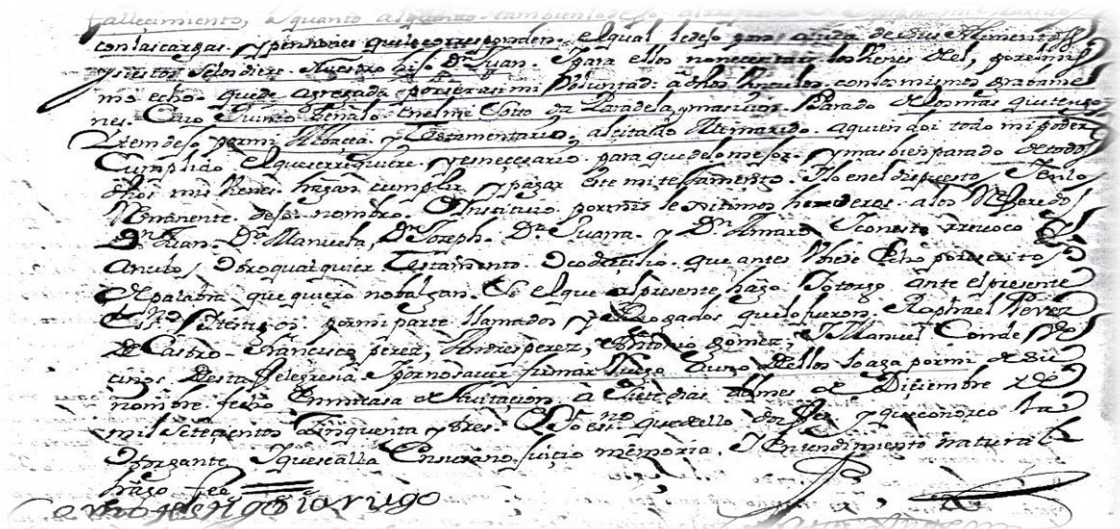 fallecimiento,
con las cargas. y penciones que le corresponden. el qual le dejo para ayuda de sus Alimentos
y si estos se los diere. Nuestro hijo Dn. Juan. para ellos no necesitare los bienes del, por el mis
mo echo. quede agregada por ser asi mi Voluntad: a dhos Vinculos. con los mismos grabame
nes. Cuio quinto Señalo en el mi Coto da Pradela, y mas vien Parado de los mas que tengo
Yten dejo por mi Albacea. y Testamentario, al citado Mi marido. a quien doi todo mi poder
Cumplido el que se requiere. y es necesario. para que de lo mejor. y mas bien parado de todos
dhos mis Vienes. hagan cumplir y pagar este mi testamento. Y lo en el dispuesto, Y en lo
Remanente dejo. nombro. E Ynstituio por mis lexitimos herederos. a los Referidos
Dn. Juan. Da. Manuela, Dn. Joseph. Da. Juana. y Dn. Amaro Y con esto Revoco El
Anulo, Otro qualquier Testamento. o codicilio. que antes Ubiese Echo por escrito,
o palabra que quiero no balgan. Es el que al presente hago Y otorgo ante el presente
Essno. y testigos por mi parte llamados y Rogados que lo fueron. Raphael Perez
de Castro. Francisco perez, Andres perez, Antonio gomez, Manuel Conde
cinos desta felegresia y por no saver firmar Ruego a uno dellos lo aga por mi de su
nombre fecho En mi casa de Avitacion a Siete dias del mes de Diciembre de
mil Setecientos Cinquenta y tres. E Yo essno. que dello doy fee y que conozco la
Otorgante Y que se alla En su sano juicio memoria. Y Entendimiento natural
hago fee